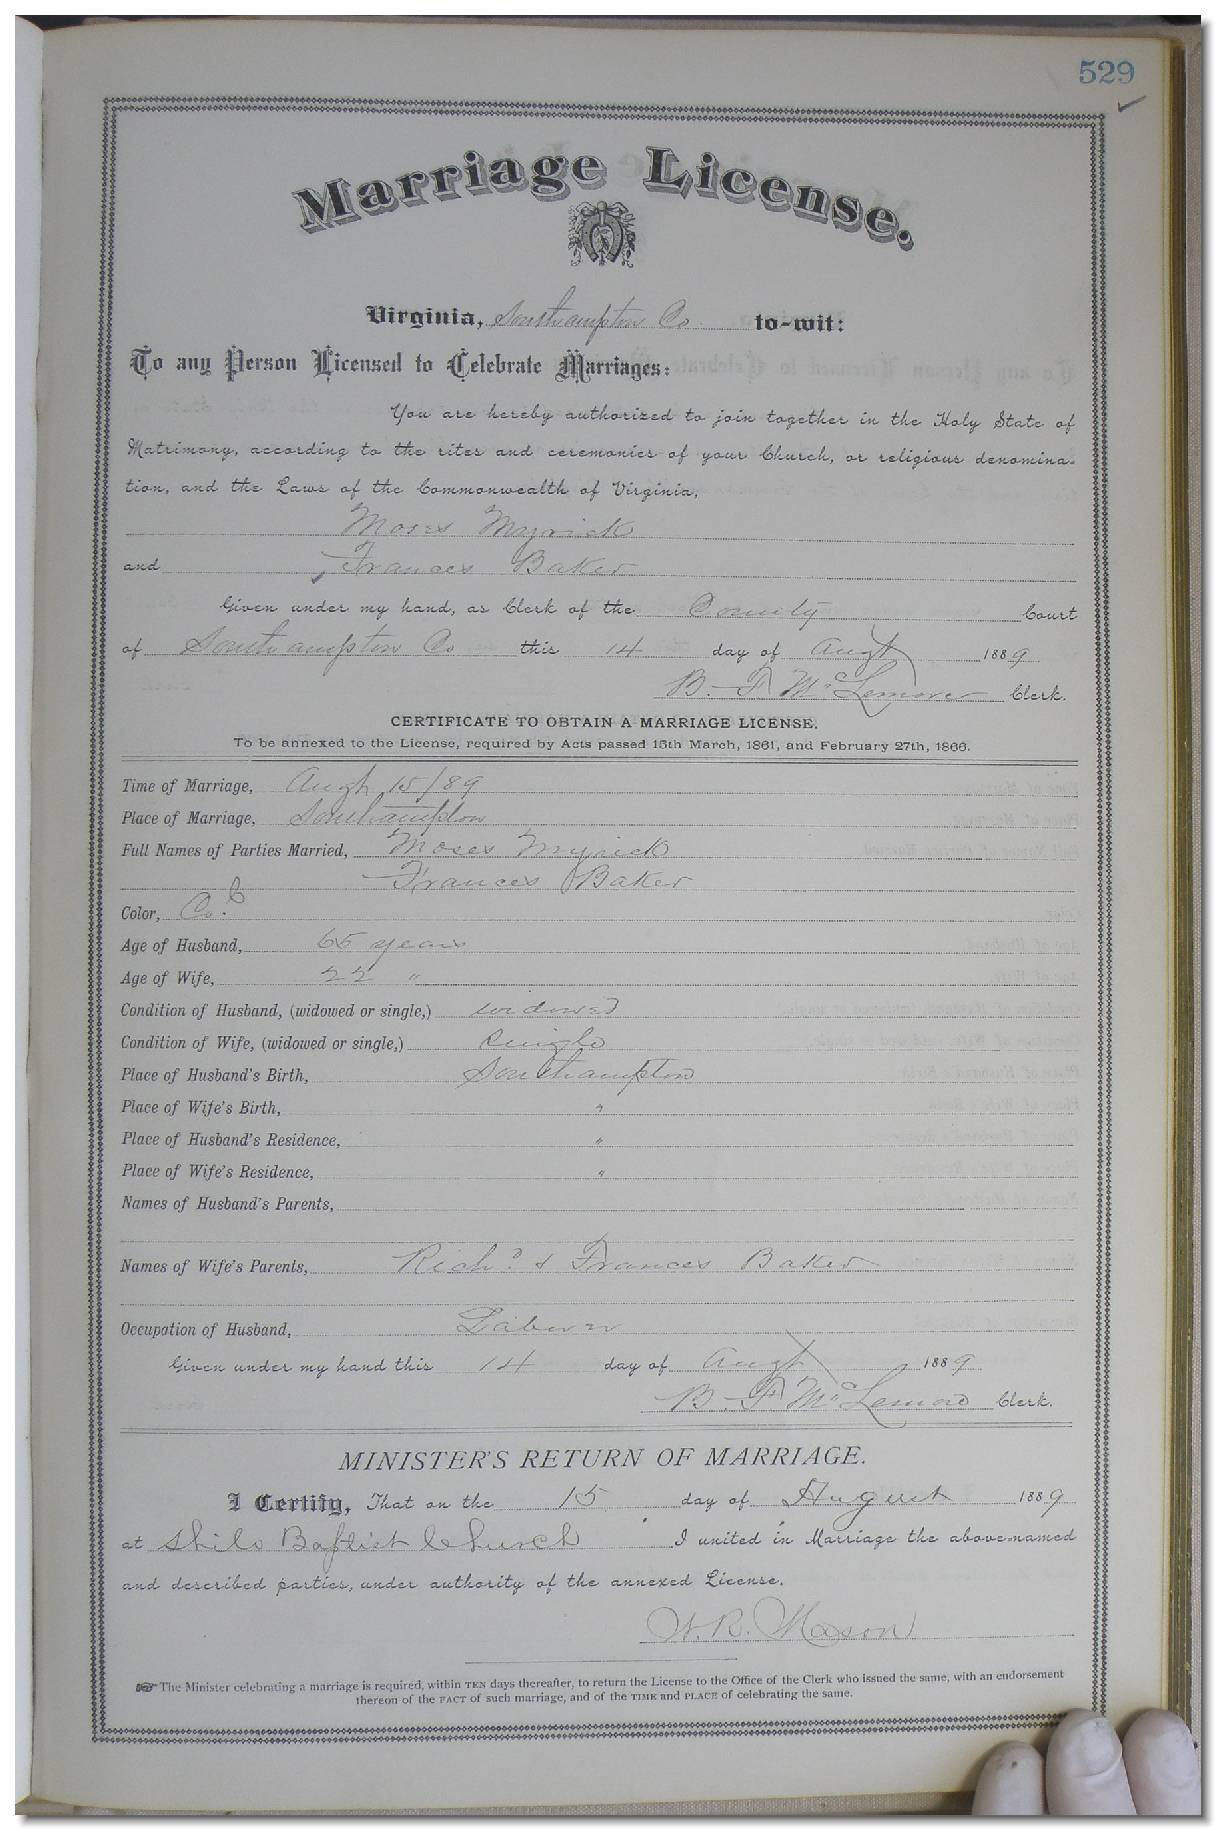 529
Marriage License.
Virginia, Southampton Co to-wit:
To any Person Licensed to Celebrate Marriages:
You are hereby authorized to join together in the Holy State of
Matrimony, according to the rites and ceremonies of your Church, or religious denomina-
tion, and the Laws of the Commonwealth of Virginia,
Moses Myrick
and Frances Baker
Given under my hand, as Clerk of the County Court
of Southampton Co this 14 day of Augt 1889
B. F. McLemore Clerk.
CERTIFICATE TO OBTAIN A MARRIAGE LICENSE.
To be annexed to the License, required by Acts passed 15th March, 1861, and February 27th, 1866.
Time of Marriage, Augt 15/89
Place of Marriage, Southampton
Full Names of Parties Married, Moses Myrick
Frances Baker
Color, Co.
Age of Husband, 65 years
Age of Wife, 22 "
Condition of Husband, (widowed or single,) widowed
Condition of Wife, (widowed or single,) Single
Place of Husband's Birth, Southampton
Place of Wife's Birth, "
Place of Husband's Residence, "
Place of Wife's Residence, "
Names of Husband's Parents,
Names of Wife's Parents, Richd & Frances Baker
Occupation of Husband, Laborer
Given under my hand this 14 day of Augt 1889
B. F. McLemore Clerk.
MINISTER'S RETURN OF MARRIAGE.
I Certify, That on the 15 day of August 1889
at Shilo Baptist Church I united in Marriage the above-named
and described parties, under authority of the annexed License.
W. R. Mason
☞ The Minister celebrating a marriage is required, within TEN days thereafter, to return the License to the Office of the Clerk who issued the same, with an endorsement
thereof of the FACT of such marriage, and of the TIME and PLACE of celebrating the same.